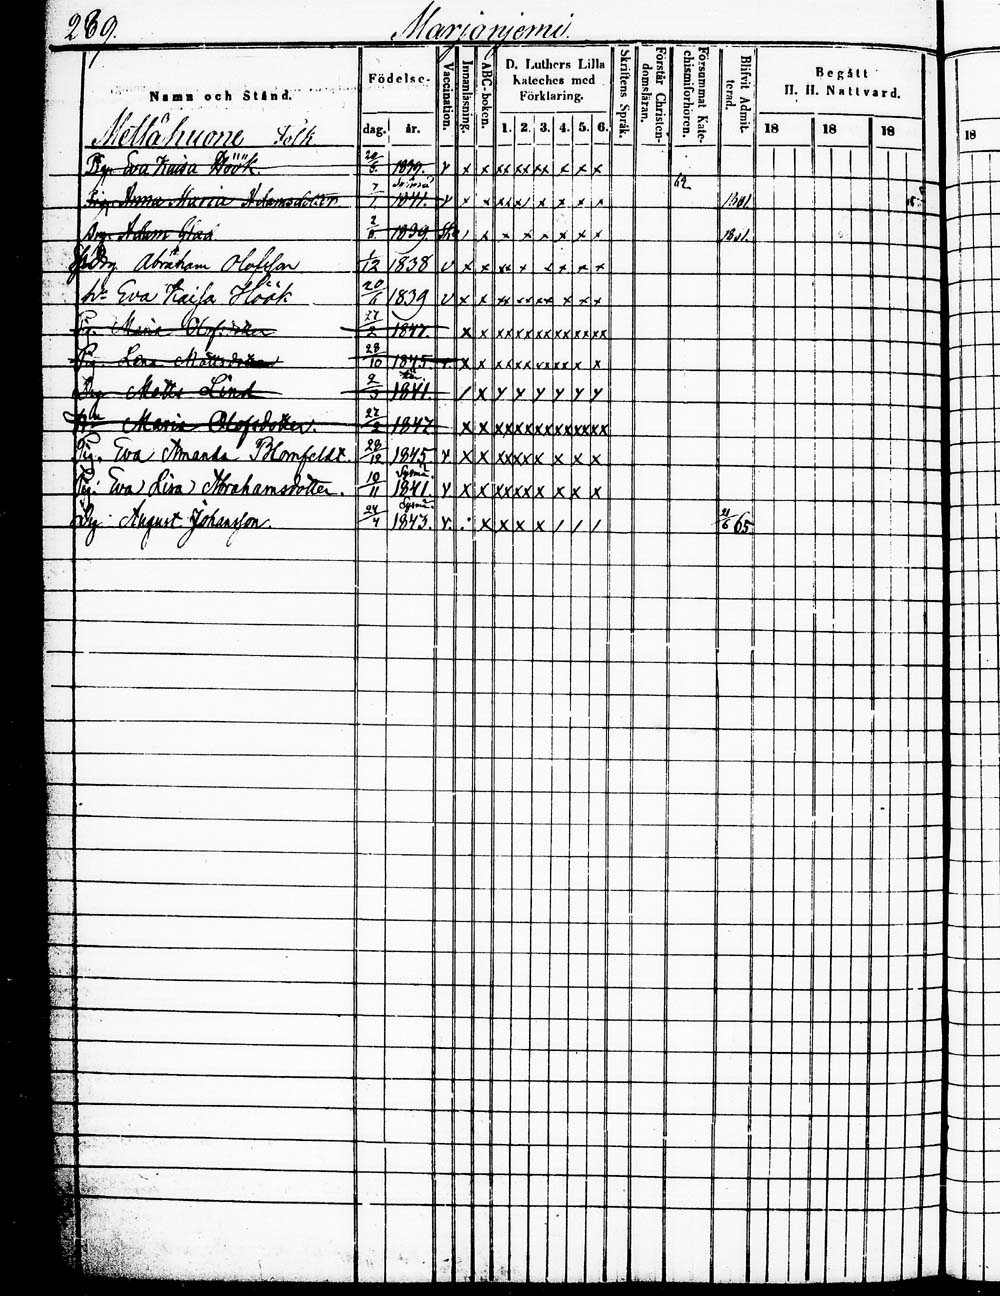 239. Marianjemi.
Namn och Stånd. Födelse- dag. år. Vaccination. Innanläsning. ABC-boken. D. Luthers Lilla Kateches med Förklaring. 1. 2. 3. 4. 5. 6. Skriftens Språk. Förstår Christendomsläran. Försummat Katechismiförhören. Blifvit Admitterad. Begått H. H. Nattvard. 18 18 18 18
Mellåhuone Folk
Pig. Eva Kaisa Höök 20/6 1839. v x x xx xx x x x
Pig. Anna Maria Adamsdotter 7/1 1841. v x x 62 1861
Drg. Adam Glad 2/6 1839. / x x x x x x x 1861.
Drg Abraham Olofsson 1/12 1838 v x x xx x x x x x
hu Eva Kaisa Höök 20/6 1839 v x x xx xx xx x x x
Pig. Maria Olofsdotter 27/2 1847. x x xx xx xx xx xx xx
Pig. Lena Mattsdotter 28/10 1845 x x xx xx x
Drg Matts Lind 9/3 1841. / x y y y y y y
Hu Maria Olofsdotter. 27/2 1847 x x xx xx xx xx xx xx
Pig. Eva Amanda Blomfeldt. 28/12 1845 v x x xx xx x x x x
Pig. Eva Lisa Abrahamsdotter. 10/11 Sysmä 1841. v x x xx xx x x x x
Drg August Johansson. 24/4 Sysmä. 1843. v. x x x x / / / 21/6 65.